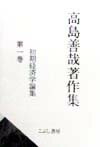 高島善哉著作集
第一巻
初期経済学論集
こぶし書房